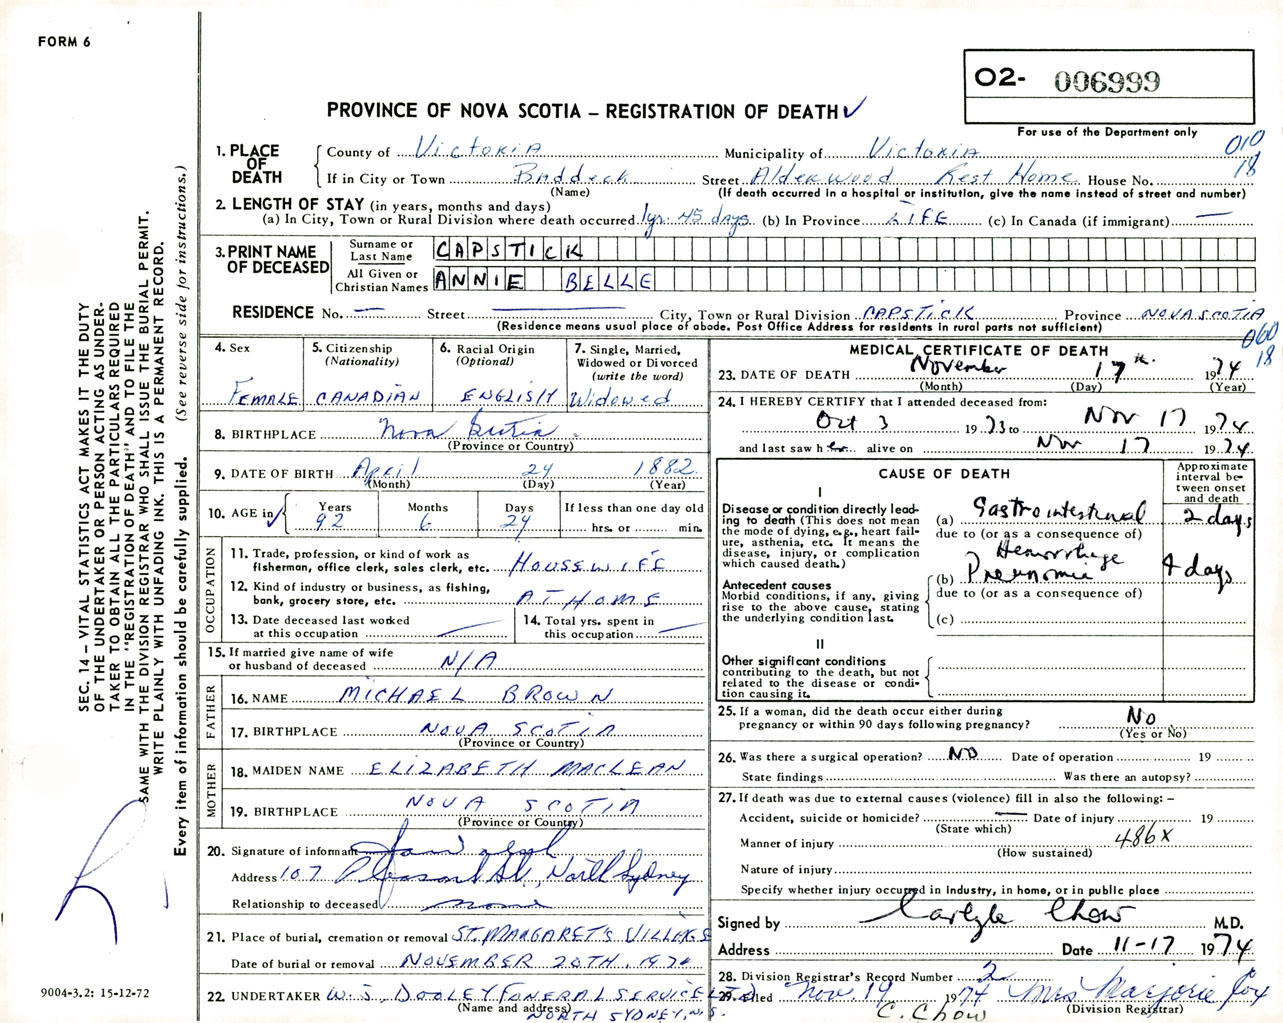 FORM 6
O2- 006999
PROVINCE OF NOVA SCOTIA – REGISTRATION OF DEATH ✓
For use of the Department only
010
18
1. PLACE OF DEATH
County of Victoria Municipality of Victoria
If in City or Town Baddeck Street Alderwood Rest Home House No.
(Name) (If death occurred in a hospital or institution, give the name instead of street and number)
2. LENGTH OF STAY (in years, months and days)
(a) In City, Town or Rural Division where death occurred 1yr. 45 days (b) In Province LIFE (c) In Canada (if immigrant) —
3. PRINT NAME OF DECEASED
Surname or Last Name CAPSTICK
All Given or Christian Names ANNIE BELLE
RESIDENCE No. — Street — City, Town or Rural Division CAPSTICK Province NOVA SCOTIA
(Residence means usual place of abode. Post Office Address for residents in rural parts not sufficient)
060
18
4. Sex
FEMALE
5. Citizenship
(Nationality)
CANADIAN
6. Racial Origin
(Optional)
ENGLISH
7. Single, Married, Widowed or Divorced
(write the word)
Widowed
8. BIRTHPLACE Nova Scotia
(Province or Country)
9. DATE OF BIRTH April 24 1882
(Month) (Day) (Year)
10. AGE in ✓
Years Months Days If less than one day old
92 6 24 hrs. or min.
OCCUPATION
11. Trade, profession, or kind of work as fisherman, office clerk, sales clerk, etc. HOUSEWIFE
12. Kind of industry or business, as fishing, bank, grocery store, etc. AT HOME
13. Date deceased last worked at this occupation —
14. Total yrs. spent in this occupation —
15. If married give name of wife or husband of deceased N/A
FATHER
16. NAME MICHAEL BROWN
17. BIRTHPLACE NOVA SCOTIA
(Province or Country)
MOTHER
18. MAIDEN NAME ELIZABETH MACLEAN
19. BIRTHPLACE NOVA SCOTIA
(Province or Country)
20. Signature of informant
Address 107 Pleasant St., North Sydney
Relationship to deceased none
21. Place of burial, cremation or removal ST. MARGARET'S VILLAGE
Date of burial or removal NOVEMBER 20TH, 1974
22. UNDERTAKER W. J. DOOLEY FUNERAL SERVICE LTD
(Name and address) NORTH SYDNEY, N.S.
MEDICAL CERTIFICATE OF DEATH
23. DATE OF DEATH November 17th. 1974
(Month) (Day) (Year)
24. I HEREBY CERTIFY that I attended deceased from:
Oct 3 1973 to Nov 17 1974
and last saw her alive on Nov 17 1974
CAUSE OF DEATH
Approximate interval between onset and death
I
Disease or condition directly leading to death (This does not mean the mode of dying, e.g., heart failure, asthenia, etc. It means the disease, injury, or complication which caused death.)
(a) Gastrointestinal 2 days
due to (or as a consequence of)
Hemorrhage
Antecedent causes
Morbid conditions, if any, giving rise to the above cause, stating the underlying condition last.
(b) Pneumonia 4 days
due to (or as a consequence of)
(c)
II
Other significant conditions contributing to the death, but not related to the disease or condition causing it.
25. If a woman, did the death occur either during pregnancy or within 90 days following pregnancy? No
(Yes or No)
26. Was there a surgical operation? NO Date of operation 19
State findings Was there an autopsy?
27. If death was due to external causes (violence) fill in also the following: –
Accident, suicide or homicide? — Date of injury 19
(State which)
Manner of injury 486X
(How sustained)
Nature of injury
Specify whether injury occurred in Industry, in home, or in public place
Signed by Carlyle Chow M.D.
Address Date 11-17 1974
28. Division Registrar's Record Number 2
29. Filed Nov. 19 1974 Mrs Marjorie Fox
C. Chow (Division Registrar)
SEC. 14 – VITAL STATISTICS ACT MAKES IT THE DUTY
OF THE UNDERTAKER OR PERSON ACTING AS UNDER-
TAKER TO OBTAIN ALL THE PARTICULARS REQUIRED
IN THE "REGISTRATION OF DEATH" AND TO FILE THE
SAME WITH THE DIVISION REGISTRAR WHO SHALL ISSUE THE BURIAL PERMIT.
WRITE PLAINLY WITH UNFADING INK. THIS IS A PERMANENT RECORD.
Every item of information should be carefully supplied. (See reverse side for instructions.)
9004-3.2: 15-12-72